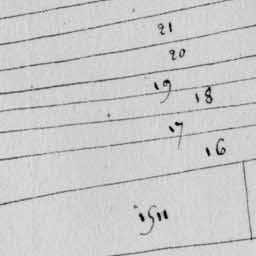 21
20
19
18
17
16
"15"